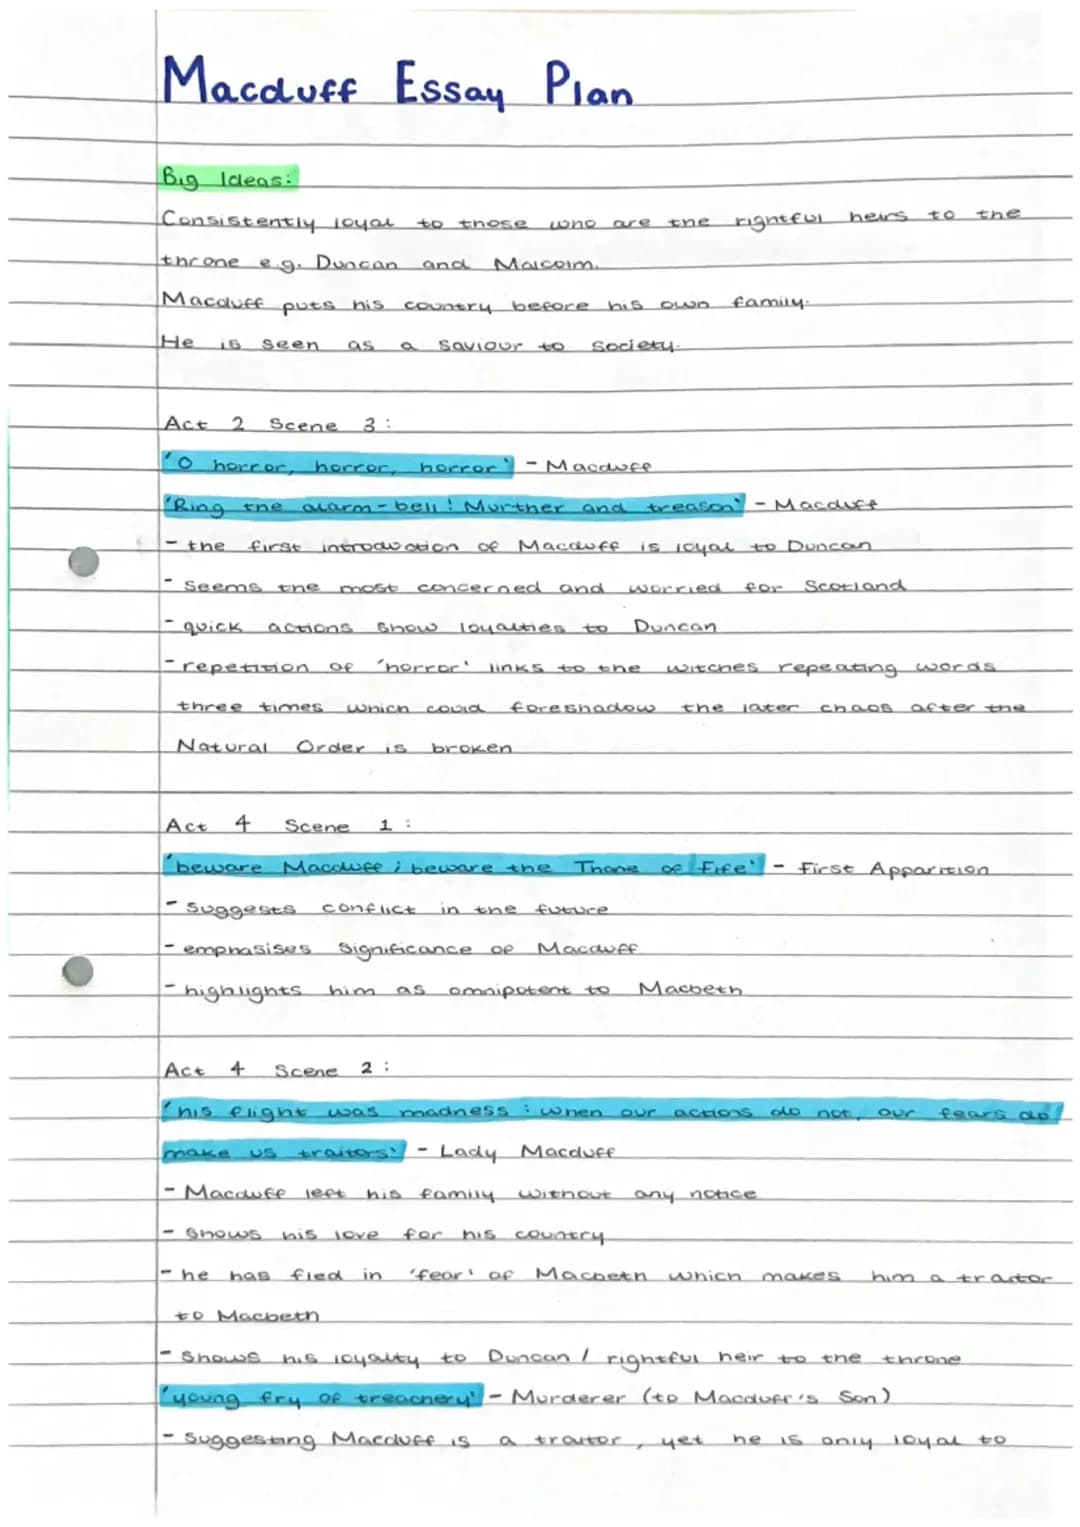 Macduff Essay Plan
Big Ideas:
Consistently loyal to those who are the rightful heirs to the
throne e.g. Duncan and Malcolm.
Macduff puts his country before his own family.
He is seen as a saviour to society.
Act 2 Scene 3:
'O horror, horror, horror' - Macduff
'Ring the alarm-bell! Murther and treason' - Macduff
- the first introduction of Macduff is loyal to Duncan
- Seems the most concerned and worried for Scotland
- quick actions show loyalties to Duncan
- repetition of 'horror' links to the witches repeating words
three times which could foreshadow the later chaos after the
Natural Order is broken
Act 4 Scene 1:
'beware Macduff; beware the Thane of Fife' - First Apparition
- Suggests conflict in the future
- emphasises significance of Macduff
- highlights him as omnipotent to Macbeth
Act 4 Scene 2:
'his flight was madness: when our actions do not, our fears do
make us traitors' - Lady Macduff
- Macduff left his family without any notice
- Shows his love for his country
- he has fled in 'fear' of Macbeth which makes him a traitor
to Macbeth
- Shows his loyalty to Duncan / rightful heir to the throne
'young fry of treachery' - Murderer (to Macduff's Son)
- Suggesting Macduff is a traitor, yet he is only loyal to